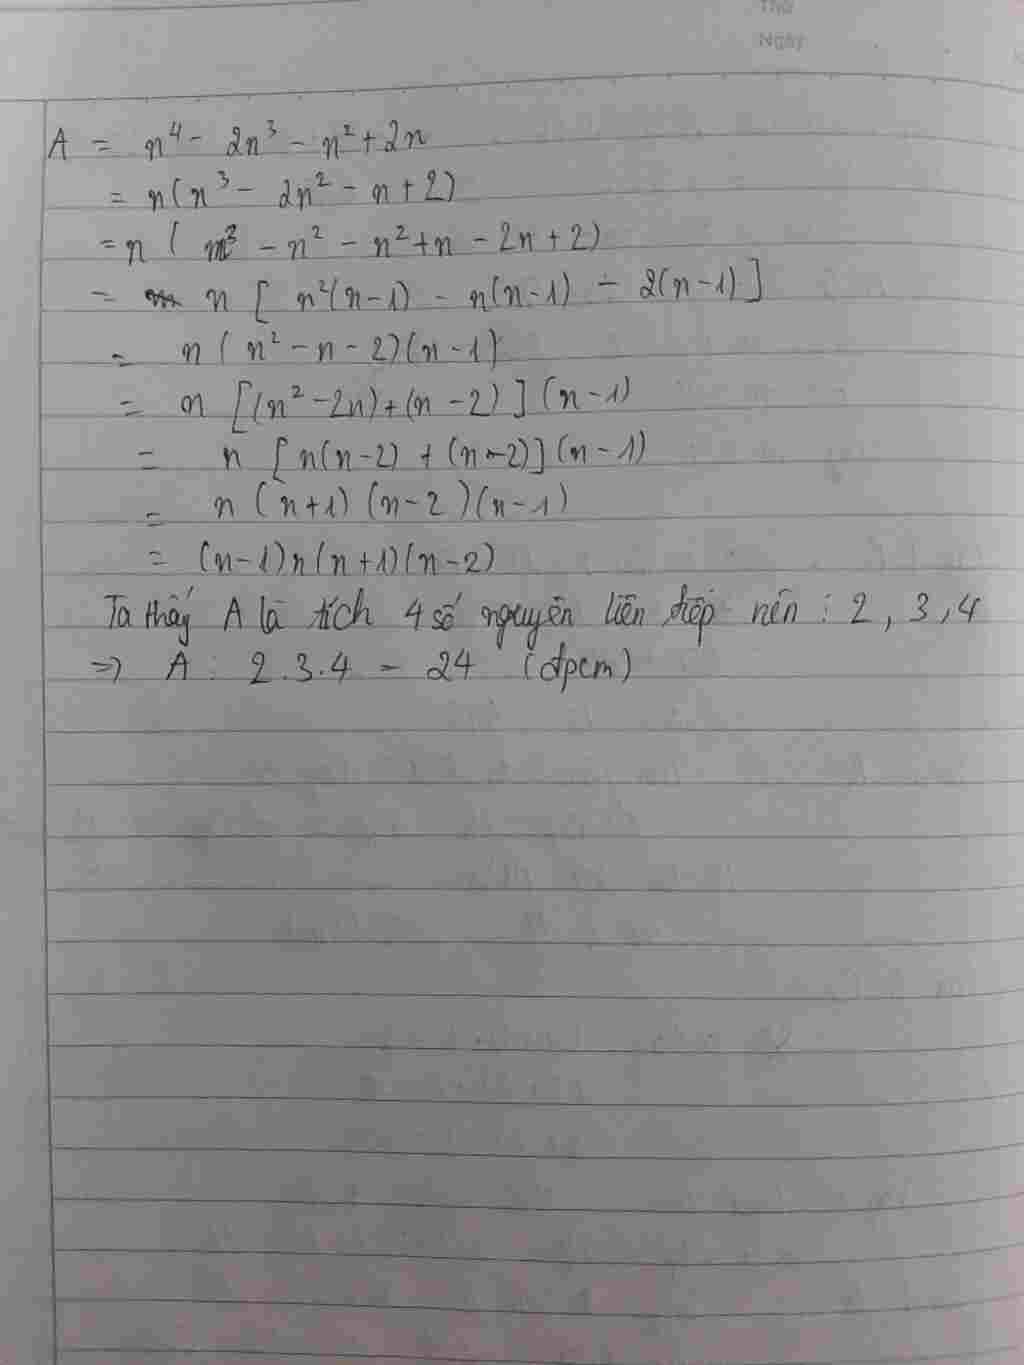 Thứ
Ngày
A = n⁴ - 2n³ - n² + 2n
= n(n³ - 2n² - n + 2)
= n ( n³ - n² - n² + n - 2n + 2)
= n [ n²(n-1) - n(n-1) - 2(n-1)]
= n ( n² - n - 2)(n - 1)
= n [(n² - 2n) + (n - 2)] (n - 1)
= n [n(n-2) + (n-2)] (n - 1)
= n (n+1) (n-2)(n-1)
= (n-1)n(n+1)(n-2)
Ta thấy A là tích 4 số nguyên liên tiếp nên ⋮ 2, 3, 4
=> A ⋮ 2.3.4 = 24 (đpcm)